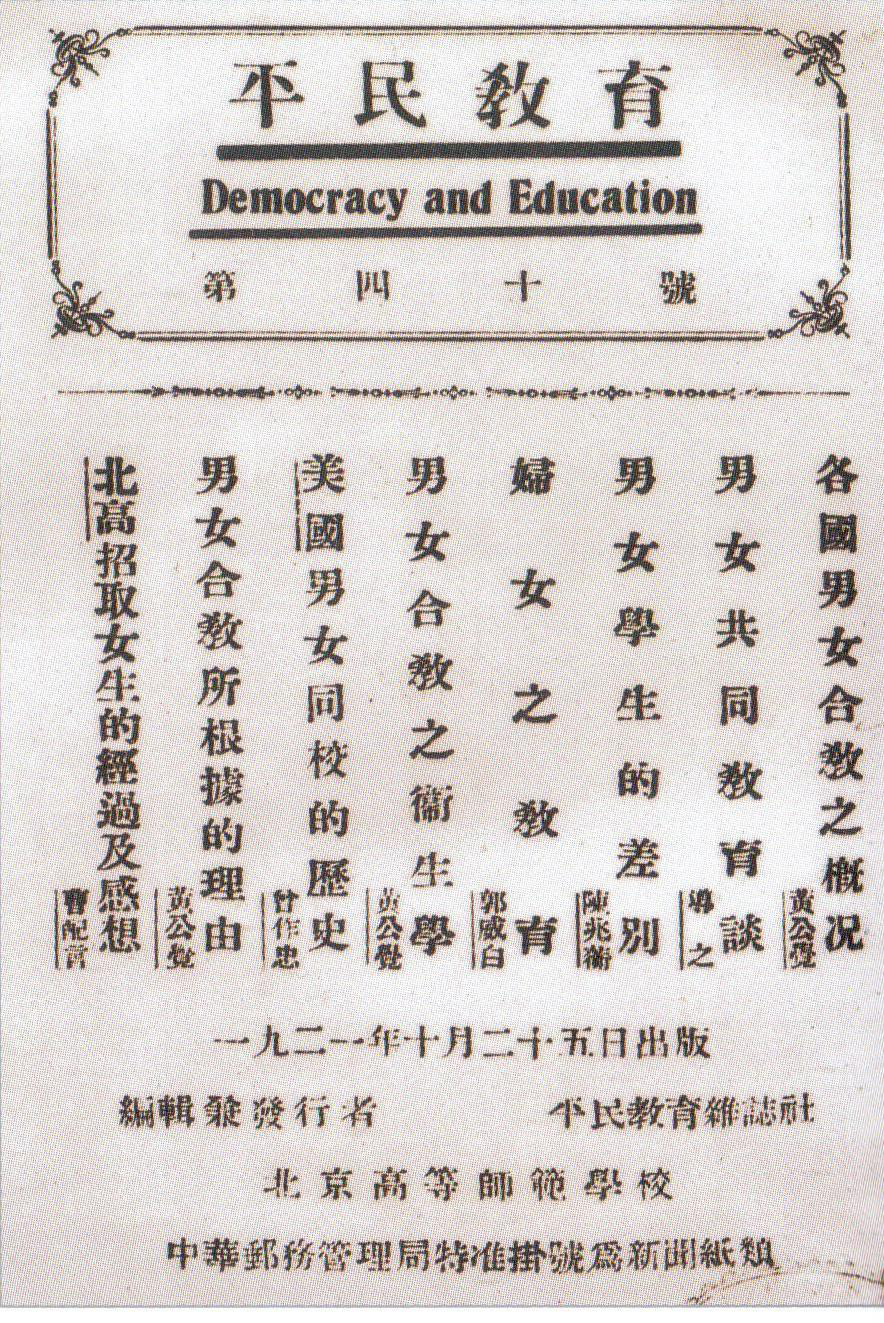 平民教育
Democracy and Education
第四十號
各國男女合教之概況
黃公覺
男女共同教育談
導之
男女學生的差別
陳兆蘅
婦女之教育
郭威白
男女合教之衞生學
黃公覺
美國男女同校的歷史
曾作忠
男女合教所根據的理由
黃公覺
北高招取女生的經過及感想
曹配言
一九二一年十月二十五日出版
編輯兼發行者 平民教育雜誌社
北京高等師範學校
中華郵務管理局特准掛號爲新聞紙類